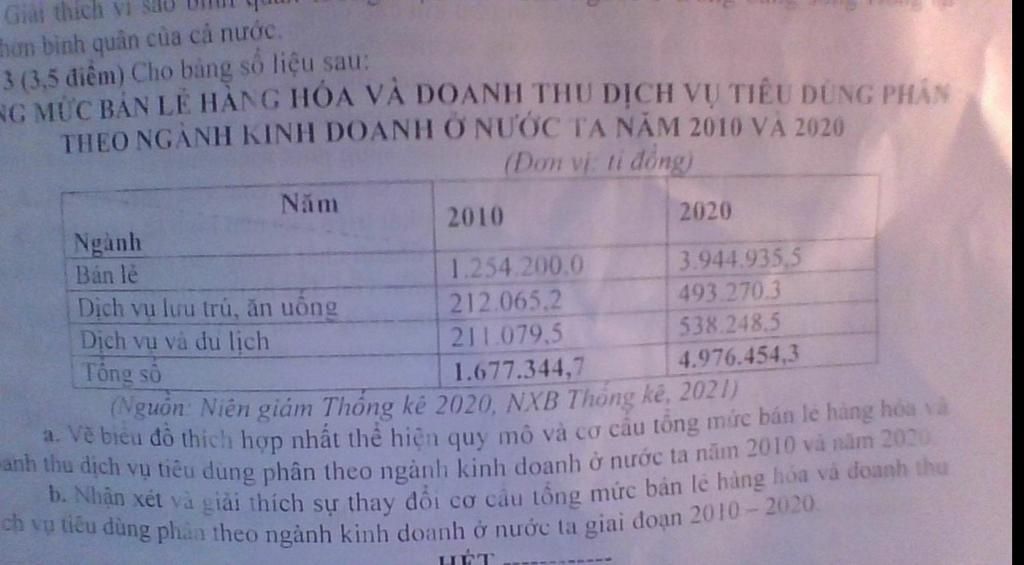 Giải thích vì sao bình quân
hơn bình quân của cả nước.
3 (3,5 điểm) Cho bảng số liệu sau:
NG MỨC BÁN LẺ HÀNG HÓA VÀ DOANH THU DỊCH VỤ TIÊU DÙNG PHÂN
THEO NGÀNH KINH DOANH Ở NƯỚC TA NĂM 2010 VÀ 2020
(Đơn vị: tỉ đồng)
Năm 2010 2020
Ngành
Bán lẻ 1.254.200.0 3.944.935,5
Dịch vụ lưu trú, ăn uống 212.065,2 493.270.3
Dịch vụ và du lịch 211.079,5 538.248.5
Tổng số 1.677.344,7 4.976.454,3
(Nguồn: Niên giám Thống kê 2020, NXB Thống kê, 2021)
a. Vẽ biểu đồ thích hợp nhất thể hiện quy mô và cơ cấu tổng mức bán lẻ hàng hóa và
anh thu dịch vụ tiêu dùng phân theo ngành kinh doanh ở nước ta năm 2010 và năm 2020.
b. Nhận xét và giải thích sự thay đổi cơ cấu tổng mức bán lẻ hàng hóa và doanh thu
ch vụ tiêu dùng phân theo ngành kinh doanh ở nước ta giai đoạn 2010 – 2020.
HẾT ------------